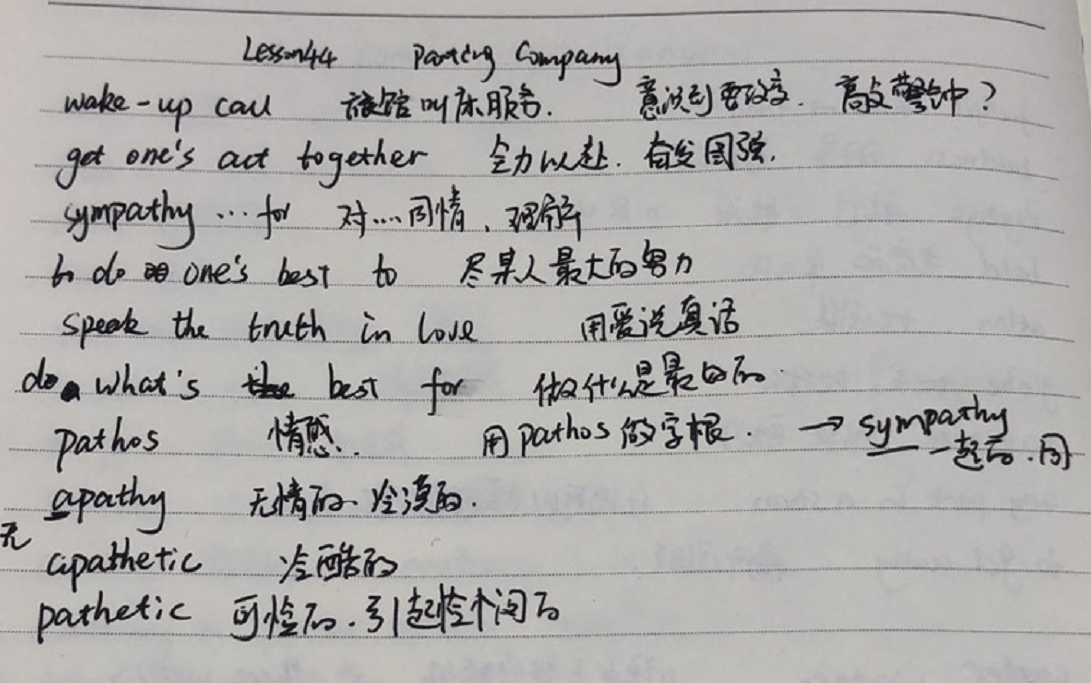 Lesson44 Parting Company
wake-up call 旅馆叫床服务. 意识到要改变. 敲警钟?
get one's act together 全力以赴. 奋发图强.
sympathy ... for 对...同情、理解
to do one's best to 尽某人最大的努力
speak the truth in love 用爱说真话
do what's best for 做什么是最好的.
pathos 情感. 用pathos做字根. → sympathy
一起的.同
apathy 无情的、冷漠的.
无
apathetic 冷酷的
pathetic 可怜的.引起怜悯的